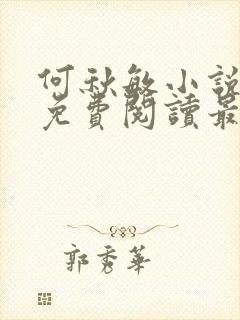 何秋敏小說
免費閱讀最
郭秀華